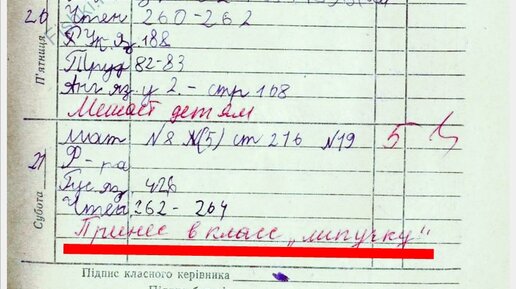 26
П'ятниця
Чтен 260-262
Рус. яз. 188
Труд 82-83
Анг яз. у 2. - стр 108
Мешает детям
21
Субота
мат №8 №(5) ст 216 №19 5
Ф-ра
Рус яз. 426
Чтен 262-264
Принес в класс „липучку"
Підпис класного керівника